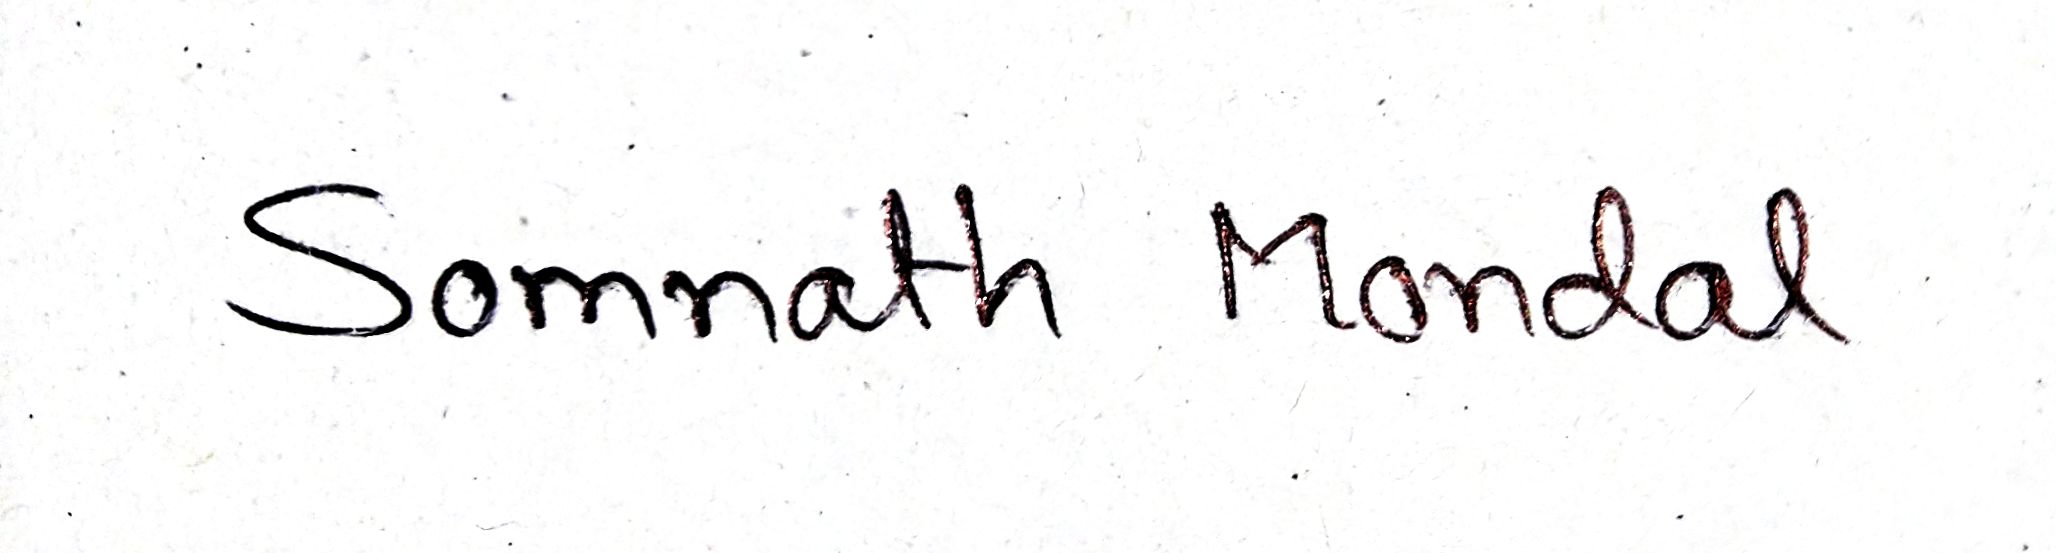 Somnath Mondal